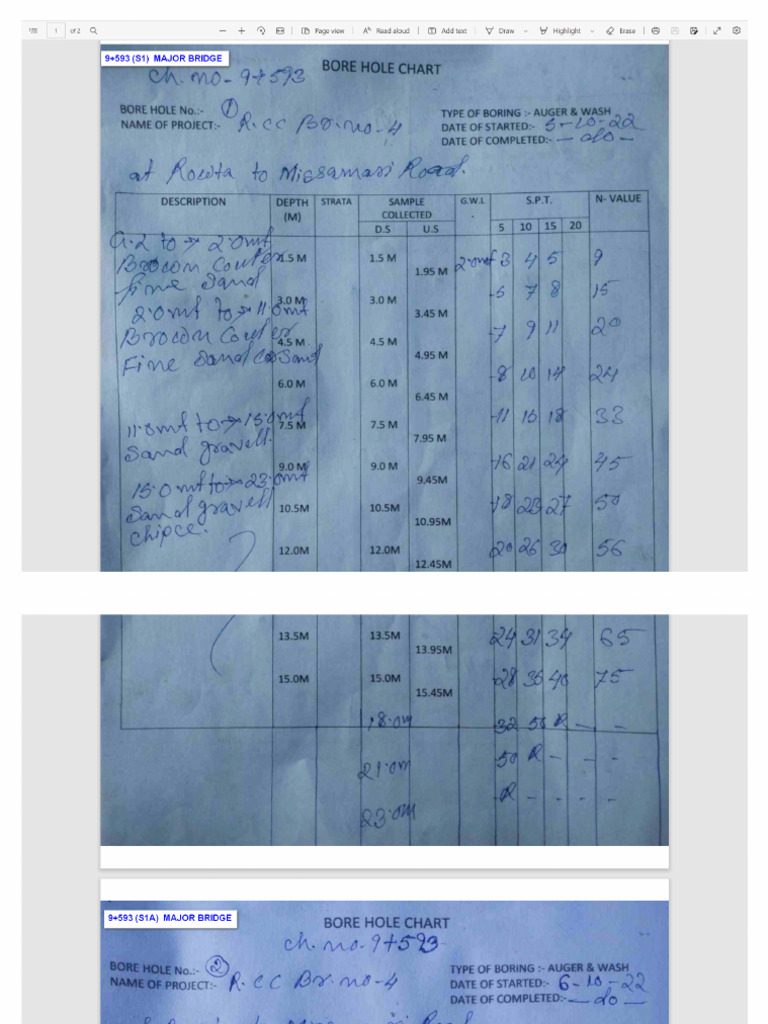 1 of 2 Page view Read aloud Add text Draw Highlight Erase
9+593 (S1) MAJOR BRIDGE
BORE HOLE CHART
Ch. no - 9+593
BORE HOLE No.:- 1
TYPE OF BORING :- AUGER & WASH
NAME OF PROJECT:- R.CC Br. no - 4
DATE OF STARTED:- 5-10-22
DATE OF COMPLETED:- -do-
at Rowta to Missamari Road.
DESCRIPTION DEPTH (M) STRATA SAMPLE COLLECTED G.W.L S.P.T. N- VALUE
D.S U.S 5 10 15 20
G.L to → 2.0mt
Brown Couler
fine Sand
2.0mt to → 11.0mt
Brown Couler
Fine Sand Sand
11.0mt to → 15.0mt
Sand gravell.
15.0mt to → 23.0mt
Sand gravell
chipce.
1.5 M 1.5 M 2.0mt 3 4 5 9
1.95 M
3.0 M 3.0 M 5 7 8 15
3.45 M
4.5 M 4.5 M 7 9 11 20
4.95 M
6.0 M 6.0 M 8 10 14 24
6.45 M
7.5 M 7.5 M 11 15 18 33
7.95 M
9.0 M 9.0 M 16 21 24 45
9.45M
10.5M 10.5M 18 23 27 50
10.95M
12.0M 12.0M 20 26 30 56
12.45M
13.5M 13.5M 24 31 34 65
13.95M
15.0M 15.0M 28 35 40 75
15.45M
18.0m 32 50 R - -
21.0m 50 R - - -
23.0m R - - - -
9+593 (S1A) MAJOR BRIDGE
BORE HOLE CHART
Ch. no - 9+593
BORE HOLE No.:- 2
TYPE OF BORING :- AUGER & WASH
NAME OF PROJECT:- R.CC Br. no - 4
DATE OF STARTED:- 6-10-22
DATE OF COMPLETED:- -do-